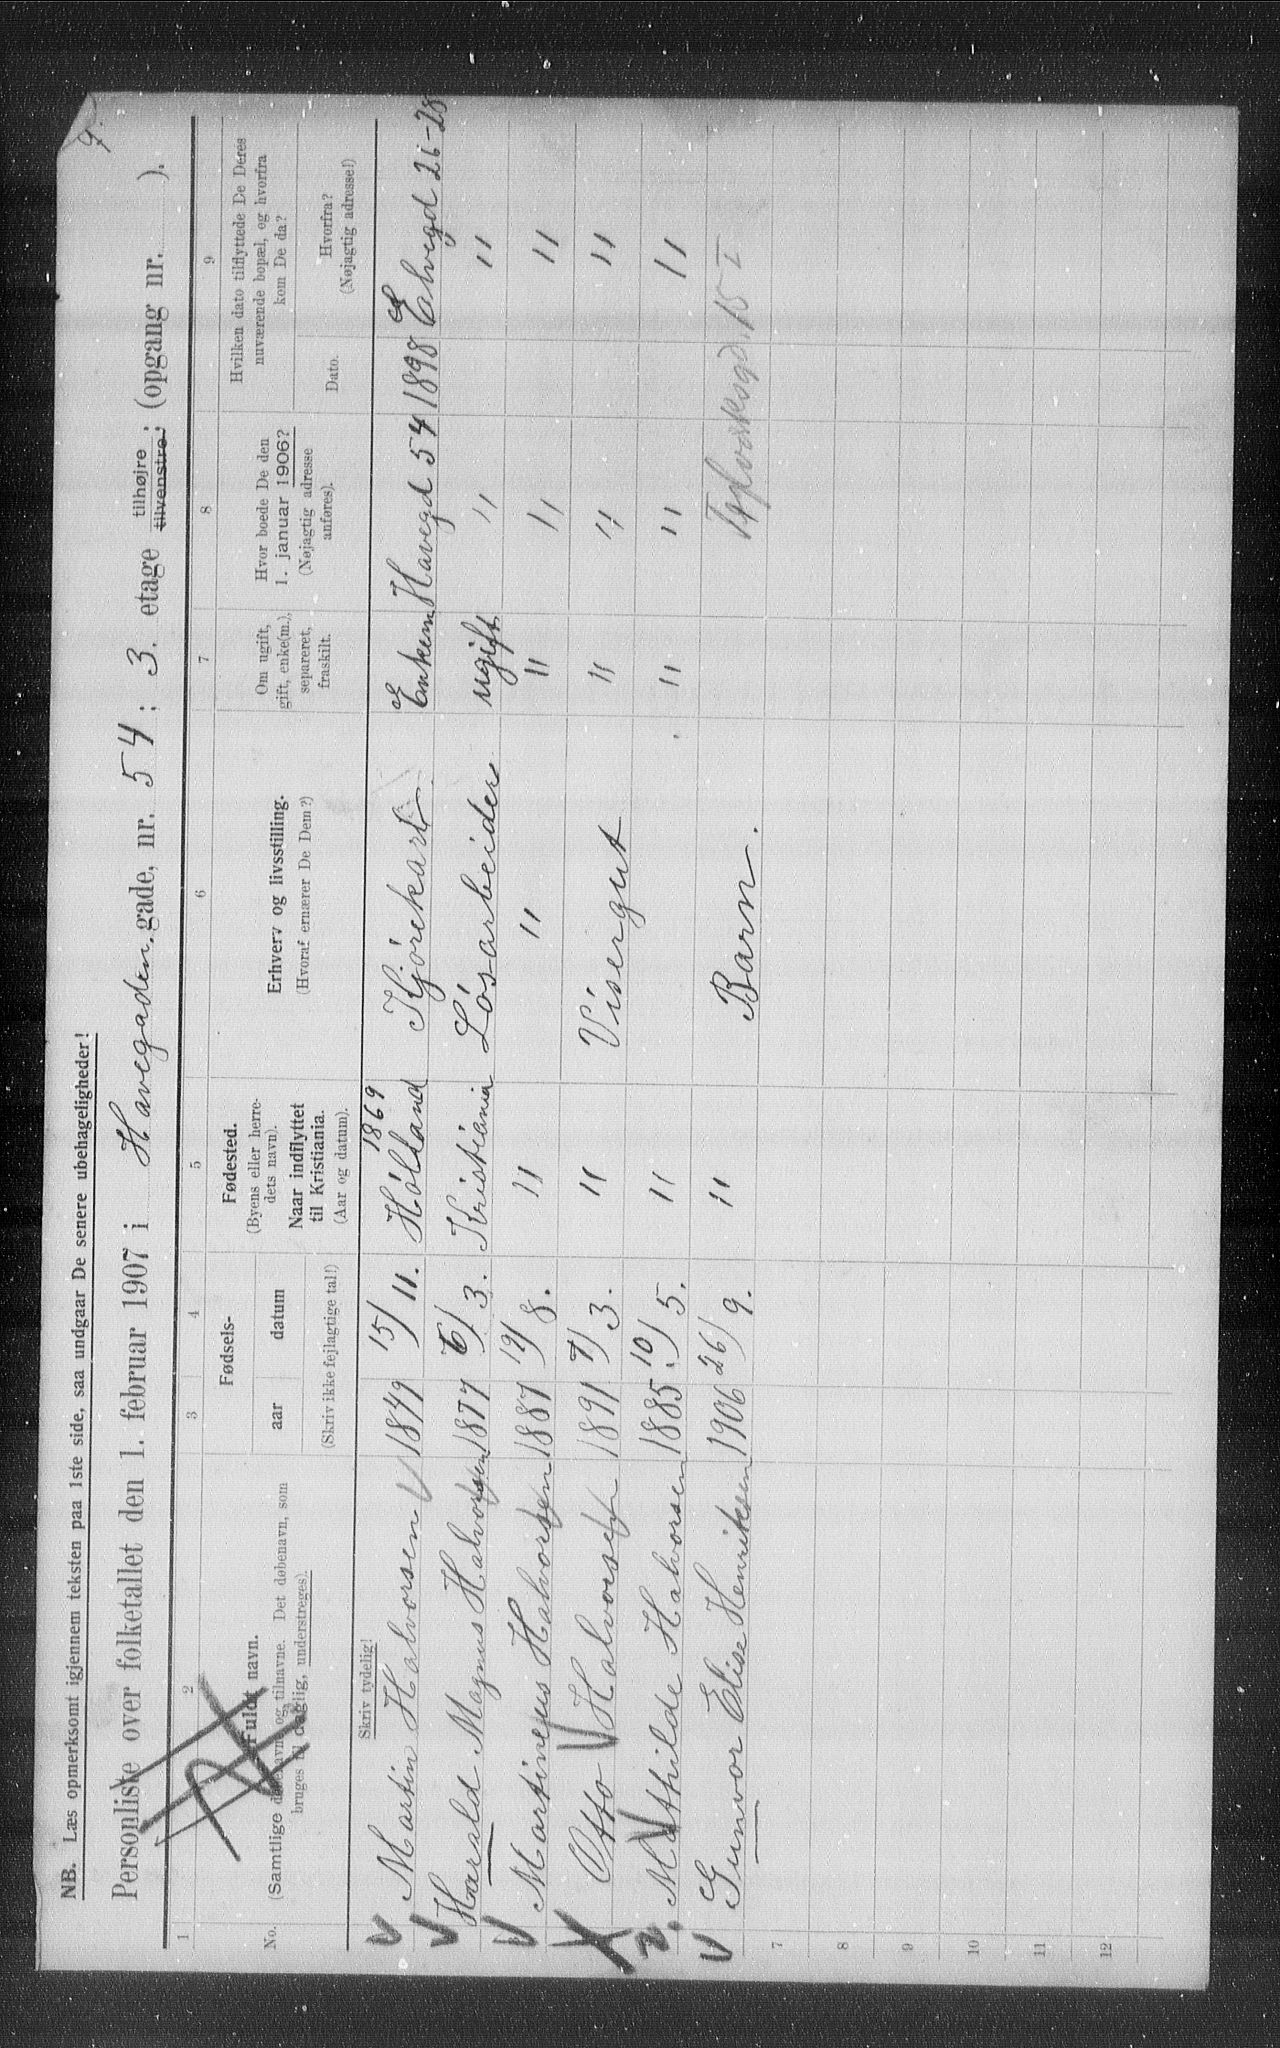 NB. Læs opmerksomt igjennem teksten paa 1ste side, saa undgaar De senere ubehageligheder!
Personliste over folketallet den 1. februar 1907 i Havegaden gade, nr. 54; 3. etage tilhøjre tilvenstre; (opgang nr. ).
1 2 3 4 5 6 7 8 9
No. Fuldt navn. (Samtlige døbenavne og tilnavne. Det døbenavn, som bruges til daglig, understreges).
Fødsels- aar datum (Skriv ikke fejlagtige tal!)
Fødested. (Byens eller herredets navn). Naar indflyttet til Kristiania. (Aar og datum).
Erhverv og livsstilling. (Hvoraf ernærer De Dem?)
Om ugift, gift, enke(m.), separeret, fraskilt.
Hvor boede De den 1. januar 1906? (Nøjagtig adresse anføres).
Hvilken dato tilflyttede De Deres nuværende bopæl, og hvorfra kom De da?
Dato. Hvorfra? (Nøjagtig adresse!)
Skriv tydelig!
Martin Halvorsen 1849 15/11. Höland 1869 Kjörekarl Enkem Havegd 54 1898 Elvegd 26-28
Harald Magnus Halvorsen 1877 6/3. Kristiania Lösarbeider ugift " "
Martineus Halvorsen 1887 19/8. " " " " "
Otto Halvorsen 1891 7/3. " Visergut " " "
Mathilde Halvorsen 1885 10/5. " " " "
Gunvor Elise Henriksen 1906 26/9. " Barn. 15 I
7
8
9
10
11
12